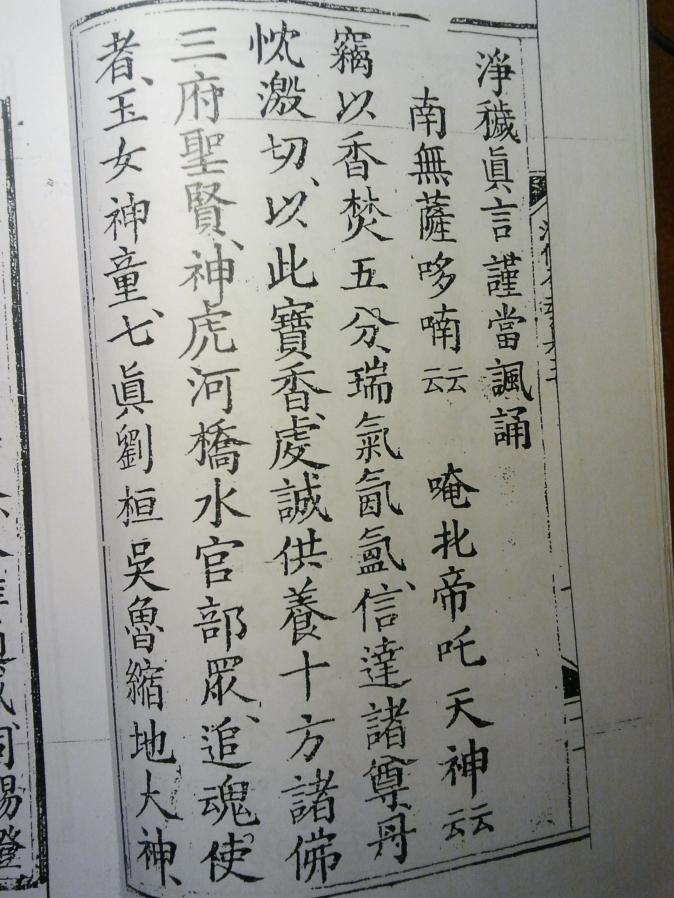 淨穢眞言謹當諷誦
南無薩哆喃云云 唵北帝吒天神云云
竊以香焚五分、瑞氣氤氳、信達諸尊、丹
忱激切、以此寶香、虔誠供養十方諸佛
三府聖賢、神虎河橋水官部眾、追魂使
者、玉女神童、七眞劉桓吳魯縮地大神、